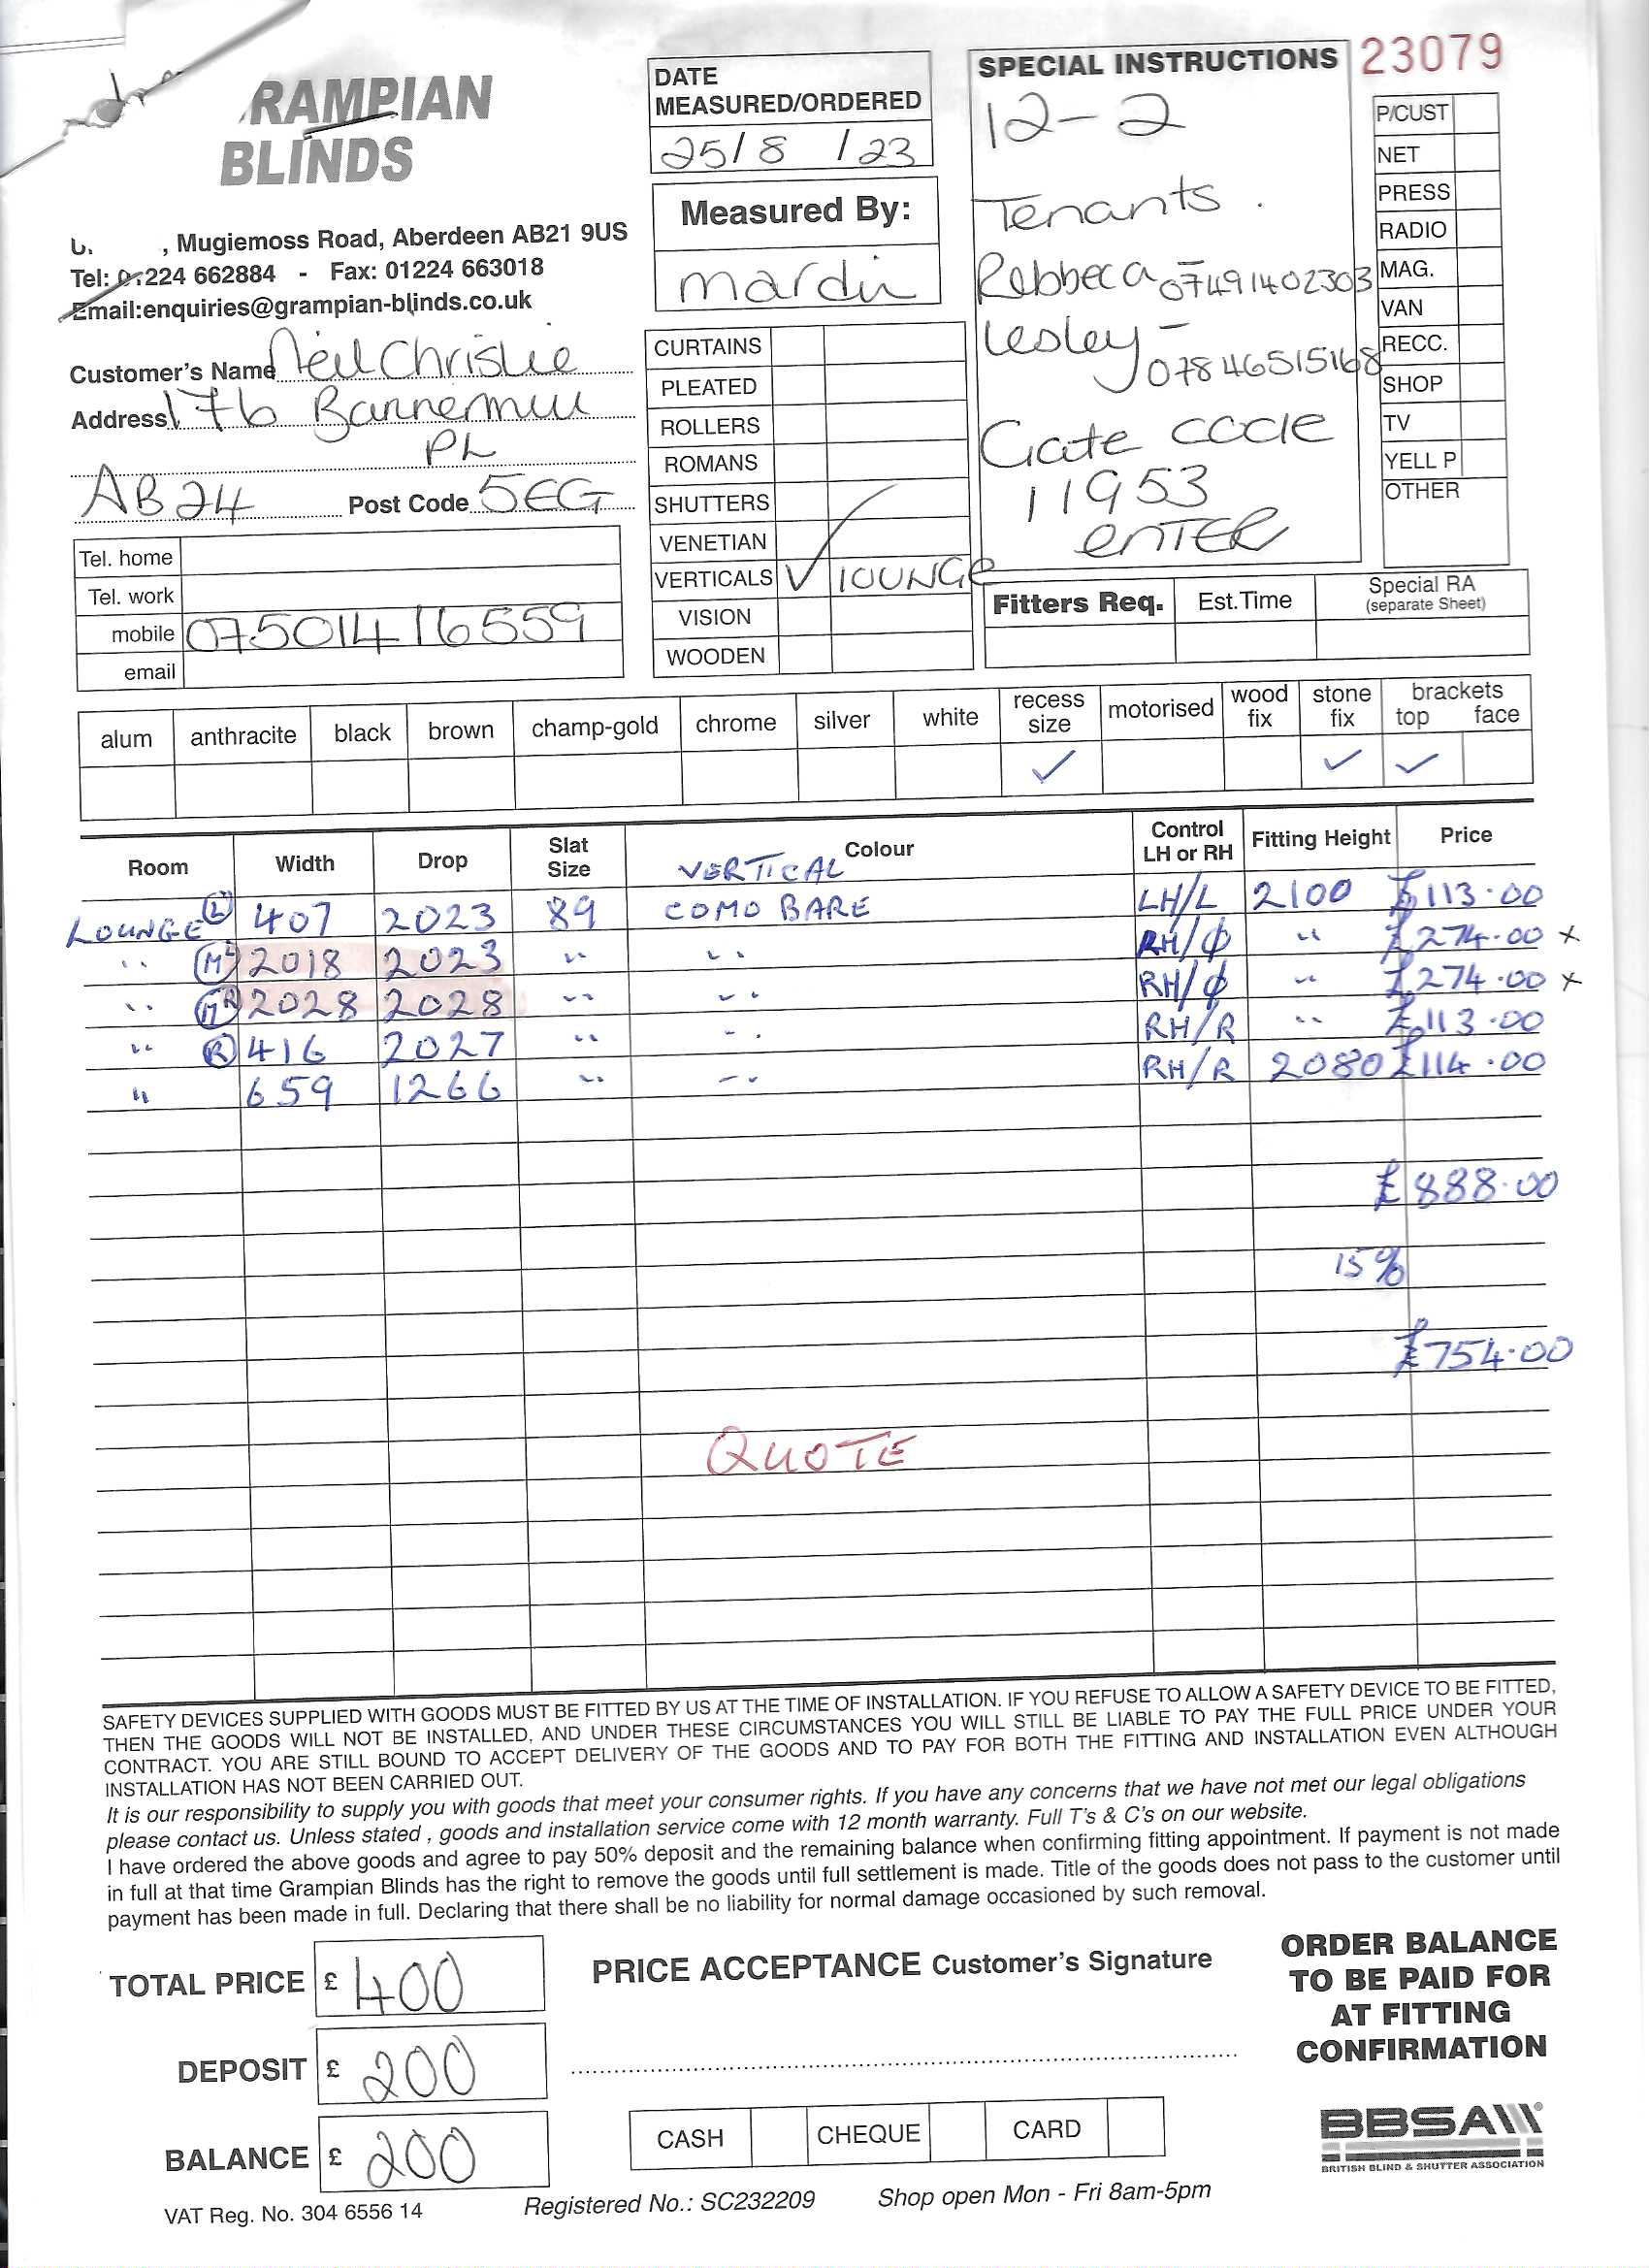 RAMPIAN
BLINDS
U. , Mugiemoss Road, Aberdeen AB21 9US
Tel: 01224 662884 - Fax: 01224 663018
Email:enquiries@grampian-blinds.co.uk
Customer's Name Neil Christie
Address 176 Bannermill
PL
AB24 Post Code 5EG
Tel. home
Tel. work
mobile 07501416559
email
DATE
MEASURED/ORDERED
25/8/23
Measured By:
mardi
CURTAINS
PLEATED
ROLLERS
ROMANS
SHUTTERS
VENETIAN
VERTICALS ✓ LOUNGE
VISION
WOODEN
SPECIAL INSTRUCTIONS
12-2
Tenants.
Rebbeca 07491402303
Lesley - 07846515168
Gate code
11953
ENTER
23079
P/CUST
NET
PRESS
RADIO
MAG.
VAN
RECC.
SHOP
TV
YELL P
OTHER
Fitters Req. Est.Time Special RA
(separate Sheet)
alum anthracite black brown champ-gold chrome silver white recess size motorised wood fix stone fix brackets top face
✓ ✓ ✓
Room Width Drop Slat Size Colour Control LH or RH Fitting Height Price
VERTICAL
LOUNGE (L) 407 2023 89 COMO BARE LH/L 2100 £113.00
" (ML) 2018 2023 " " RH/ϕ " £274.00 x
" (MR) 2028 2028 " " RH/ϕ " £274.00 x
" (R) 416 2027 " " RH/R " £113.00
" 659 1266 " " RH/R 2080 £114.00
£888.00
15%
£754.00
QUOTE
SAFETY DEVICES SUPPLIED WITH GOODS MUST BE FITTED BY US AT THE TIME OF INSTALLATION. IF YOU REFUSE TO ALLOW A SAFETY DEVICE TO BE FITTED,
THEN THE GOODS WILL NOT BE INSTALLED, AND UNDER THESE CIRCUMSTANCES YOU WILL STILL BE LIABLE TO PAY THE FULL PRICE UNDER YOUR
CONTRACT. YOU ARE STILL BOUND TO ACCEPT DELIVERY OF THE GOODS AND TO PAY FOR BOTH THE FITTING AND INSTALLATION EVEN ALTHOUGH
INSTALLATION HAS NOT BEEN CARRIED OUT.
It is our responsibility to supply you with goods that meet your consumer rights. If you have any concerns that we have not met our legal obligations
please contact us. Unless stated , goods and installation service come with 12 month warranty. Full T's & C's on our website.
I have ordered the above goods and agree to pay 50% deposit and the remaining balance when confirming fitting appointment. If payment is not made
in full at that time Grampian Blinds has the right to remove the goods until full settlement is made. Title of the goods does not pass to the customer until
payment has been made in full. Declaring that there shall be no liability for normal damage occasioned by such removal.
TOTAL PRICE £ 400
DEPOSIT £ 200
BALANCE £ 200
PRICE ACCEPTANCE Customer's Signature
CASH CHEQUE CARD
ORDER BALANCE
TO BE PAID FOR
AT FITTING
CONFIRMATION
BBSA
BRITISH BLIND & SHUTTER ASSOCIATION
VAT Reg. No. 304 6556 14
Registered No.: SC232209
Shop open Mon - Fri 8am-5pm